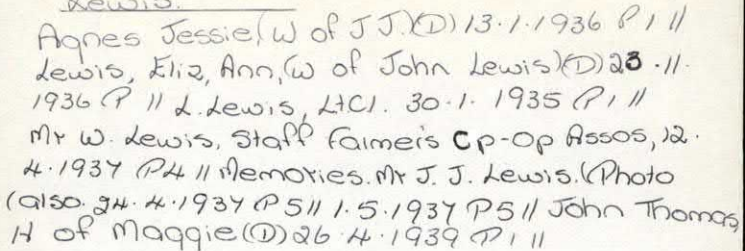 Lewis.
Agnes Jessie, (W of J J.) (D) 13.1.1936 P 1 //
Lewis, Eliz, Ann, (W of John Lewis) (D) 23.11.
1936 P // L. Lewis, Ltcl. 30.1. 1935 P 1 //
Mr W. Lewis, Staff Faimers Cp-Op Assos, 12.
4.1937 P4 // Memories. Mr J. J. Lewis. (Photo
(also. 24.4.1937 P 5 // 1.5.1937 P5 // John Thomas,
H of Maggie (D) 26.4.1939 P 1 //